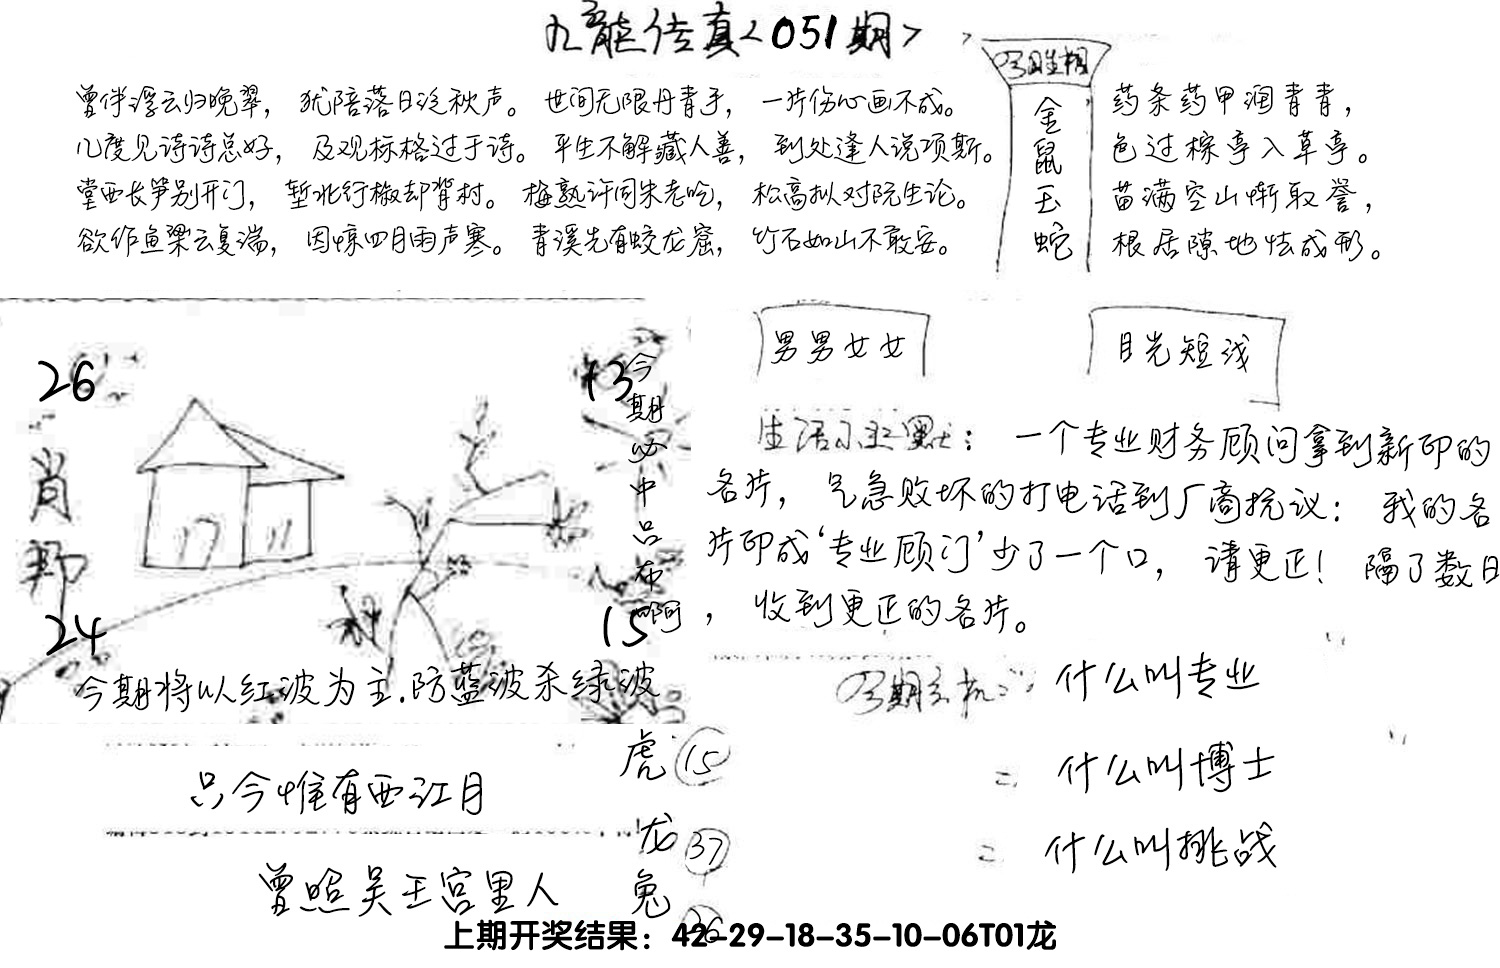 九龙传真<051期>
曾伴浮云归晚翠，犹陪落日泛秋声。世间无限丹青手，一片伤心画不成。
几度见诗诗总好，及观标格过于诗。平生不解藏人善，到处逢人说项斯。
堂西长笋别开门，堑北行椒却背村。梅熟许同朱老吃，松高拟对阮生论。
欲作鱼梁云复湍，因惊四月雨声寒。青溪先有蛟龙窟，竹石如山不敢安。
今日生相
金鼠玉蛇
药条药甲润青青，
色过棕亭入草亭。
苗满空山惭取誉，
根居隙地怯成形。
26
13
肖
郑
24
15
今期必中品布啊
今期将以红波为主.防蓝波杀绿波
男男女女
目光短浅
生活小幽默：一个专业财务顾问拿到新印的
名片，气急败坏的打电话到厂商抗议：我的名
片印成‘专业顾门’少了一个口，请更正！隔了数日
，收到更正的名片。
今期玄机：什么叫专业
= 什么叫博士
= 什么叫挑战
只今惟有西江月
曾照吴王宫里人
虎 15
龙 37
兔 26
上期开奖结果：42-29-18-35-10-06T01龙